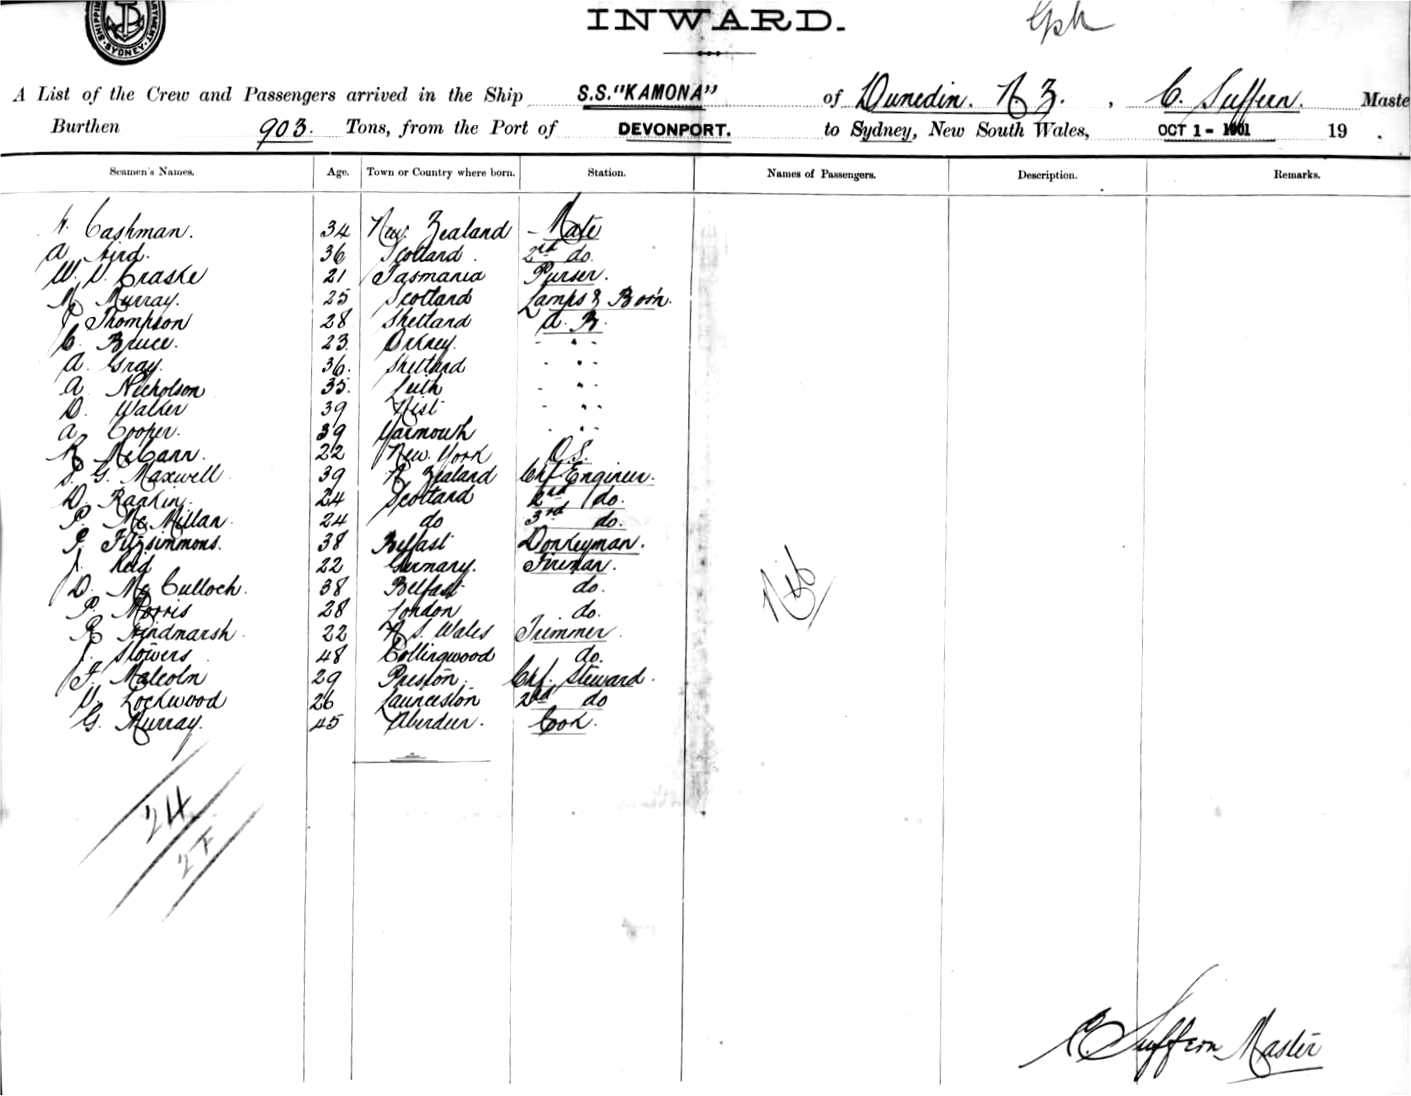 SHIPPING DEPARTMENT. SYDNEY
INWARD.
A List of the Crew and Passengers arrived in the Ship S.S. "KAMONA" of Dunedin. N Z. , C. Suffern. Maste
Burthen 903. Tons, from the Port of DEVONPORT. to Sydney, New South Wales, OCT 1 - 1901 19 .
Seamen's Names. Age. Town or Country where born. Station. Names of Passengers. Description. Remarks.
Cashman. 34 New Zealand - Mate
A. 36 Scotland. 2nd do.
W. Craske 21 Tasmania Purser.
M Murray. 25 Scotland Lamps & Bosn.
Thompson 28 Shetland A. B.
C. Bruce. 23. Orkney. - " -
A. Gray. 36. Shetland - " -
A. Nicholson 35. Leith - " -
D. Walker 39 - " -
A. Cooper. 39 Yarmouth - " -
McCann. 22 New York O.S.
G. Maxwell 39 N Zealand Chf Engineer.
D. Rankin. 24 Scotland 2nd do.
P. McMillan. 24 do 3rd do.
Fitzsimmons. 38 Belfast Donkeyman.
J. Reid 22 Germany. Fireman.
D. McCulloch. 38 Belfast do.
P. Morris 28 London do.
R Hindmarsh. 22 N. S. Wales Trimmer.
J. Stowers 48 Collingwood do.
F. Malcolm 29 Preston. Chf. Steward.
Lockwood 26 Launceston 2nd do
G. Murray. 45 Aberdeen. Cook.
Nil
24
C. Suffern Master